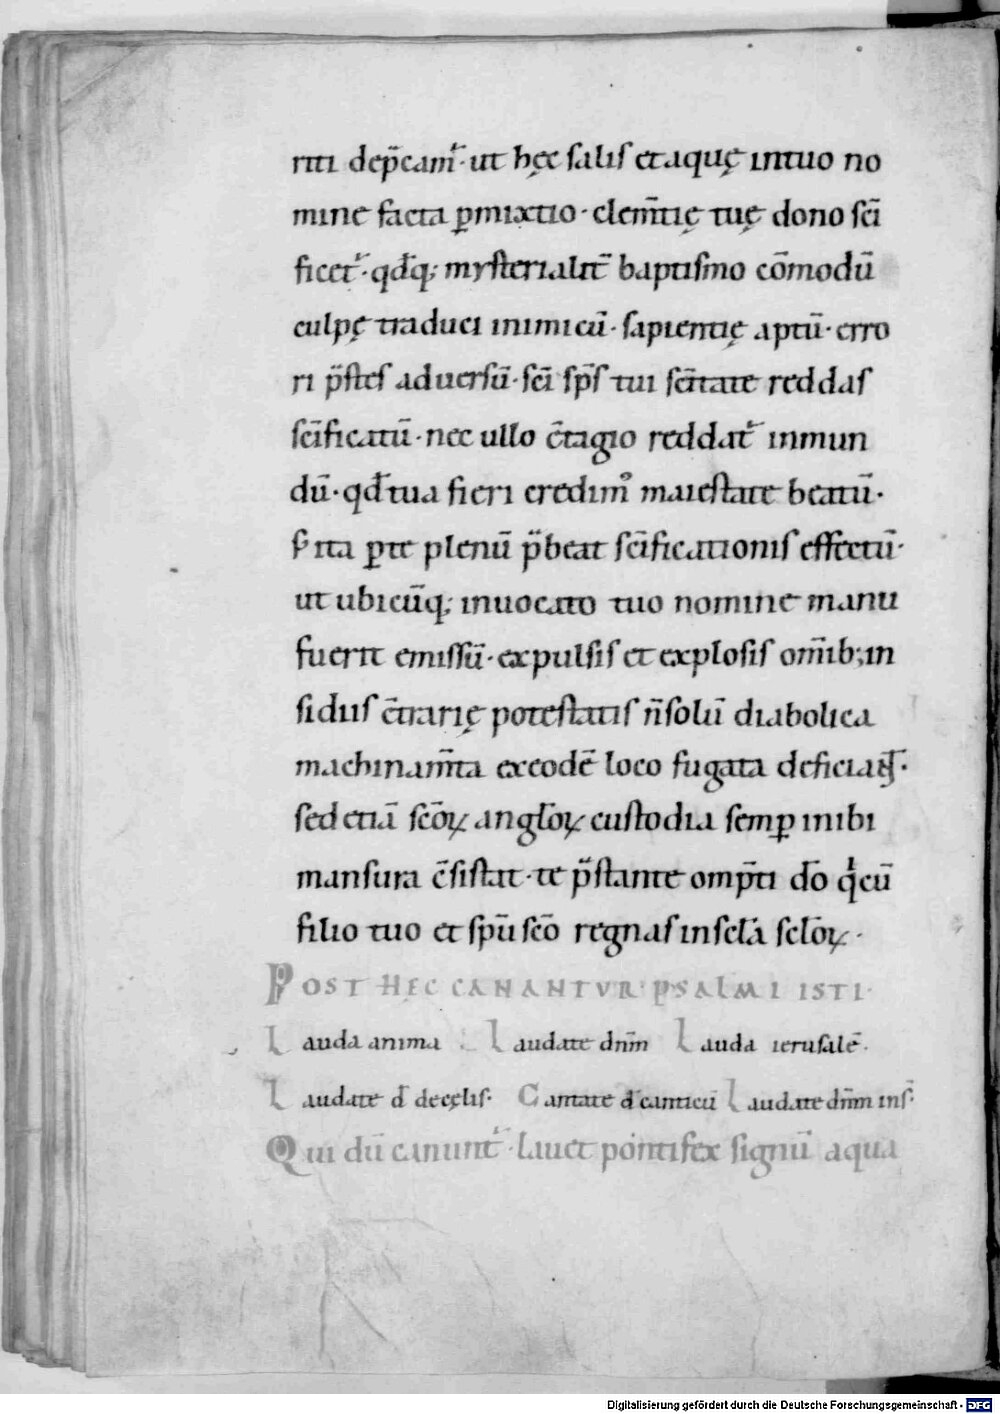 riti dep̄cam᷒· ut hęc salis et aquę in tuo no
mine facta ꝑmixtio· clem̄tię tuę dono sc̄i
ficet᷒· qd̄q; mysterialit̄ baptismo cōmodū
culpę traduci inimicū· sapientię aptū· erro
ri p̄stes aduersū· sc̄i sp̄s tui sc̄itate reddas
sc̄ificatū· nec ullo c̄tagio reddat᷒ inmun
dū· qd̄ tua fieri credimꝰ maiestate beatū·
S; ita ꝑ te plenū p̄beat sc̄ificationis effectū·
ut ubicūq; inuocato tuo nomine manu
fuerit emissū· expulsis et explosis om̄ib; in
sidiis c̄trarię potestatis n̄ solū diabolica
machinam̄ta ex eodē loco fugata deficiant·
sed etiā sc̄oꝝ angl̄oꝝ custodia semꝑ inibi
mansura c̄sistat· te p̄stante omp̄ti dō qi cū
filio tuo et sp̄u sc̄o regnas in scl̄a scl̄oꝝ·
POST HĘC CANANTVR PSALMI ISTI·
Lauda anima Laudate dn̄m Lauda ierusalē·
Laudate d̄ de cęlis· Cantate d̄ canticū Laudate dn̄m in s̄·
Qui dū canunt᷒· lauet pontifex signū aqua
Digitalisierung gefördert durch die Deutsche Forschungsgemeinschaft - DFG